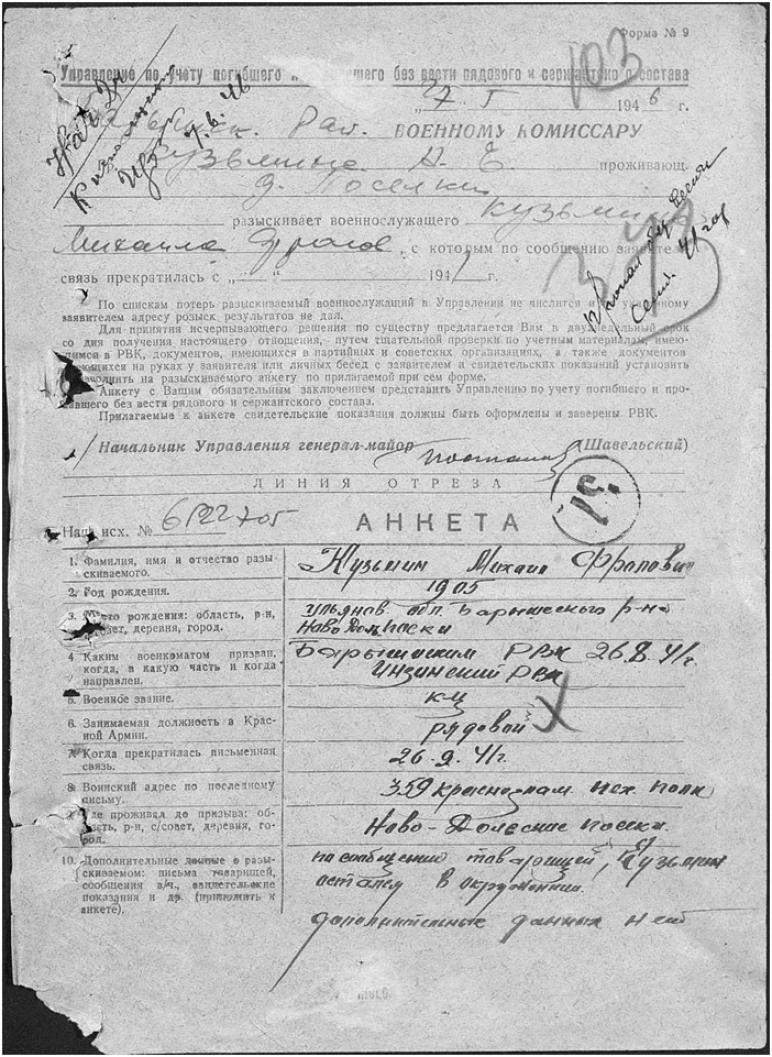 Форма № 9
103
Управление по учету погибшего и без вести рядового и сержантского состава
„27“ I 1946 г.
Рай. ВОЕННОМУ КОМИССАРУ
4.6.46
Кузьмина А. Е. проживающ.
д. Поселки
разыскивает военнослужащего Кузьмина
Михаила Фролов, с которым по сообщению заявителя
связь прекратилась с „ “ 1941 г.
Пропал без вести
Сент. 41 год
По спискам потерь разыскиваемый военнослужащий в Управлении не числится и по указанному
заявителем адресу розыск результатов не дал.
Для принятия исчерпывающего решения по существу предлагается Вам в двухнедельный срок
со дня получения настоящего отношения, путем тщательной проверки по учетным материалам, имею-
щимся в РВК, документов, имеющихся в партийных и советских организациях, а также документов
имеющихся на руках у заявителя или личных бесед с заявителем и свидетельских показаний установить
и заполнить на разыскиваемого анкету по прилагаемой при сем форме.
Анкету с Вашим обязательным заключением представить Управлению по учету погибшего и про-
павшего без вести рядового и сержантского состава.
Прилагаемые к анкете свидетельские показания должны быть оформлены и заверены РВК.
Начальник Управления генерал-майор (Шавельский)
ЛИНИЯ ОТРЕЗА
Наш исх. № АНКЕТА
1. Фамилия, имя и отчество разы-
скиваемого.
Кузьмин Михаил Фролович
2. Год рождения.
1905
3. Место рождения: область, р-н,
с/совет, деревня, город.
Ульянов. обл. Барышского р-на
4 Каким военкоматом призван,
когда, в какую часть и когда
направлен.
Барышским РВК 26.8.41г.
Инзинский РВК
5. Военное звание.
6. Занимаемая должность в Крас-
ной Армии.
рядовой
7. Когда прекратилась письменная
связь.
26-9-41г.
8. Воинский адрес по последнему
письму.
359 краснознам. полк
9. Где проживал до призыва: об-
ласть, р-н, с/совет, деревня, го-
род.
10. Дополнительные данные о разы-
скиваемом: письма товарищей,
сообщения в/ч., свидетельские
показания и др. (приложить к
анкете).
по сообщению товарищей, Кузьмин
остался в окружении.
дополнительных данных нет